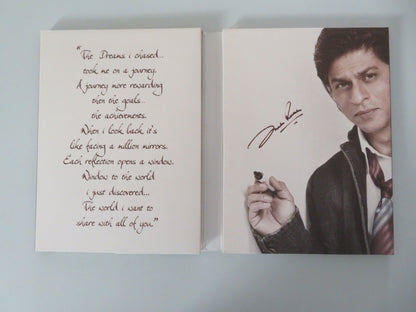 "The Dreams i chased..
took me on a journey.
A journey more rewarding
then the goals...
the achievements.
When i look back it's
like facing a million mirrors.
Each reflection opens a window.
Window to the world
i just discovered...
The world i want to
share with all of you."